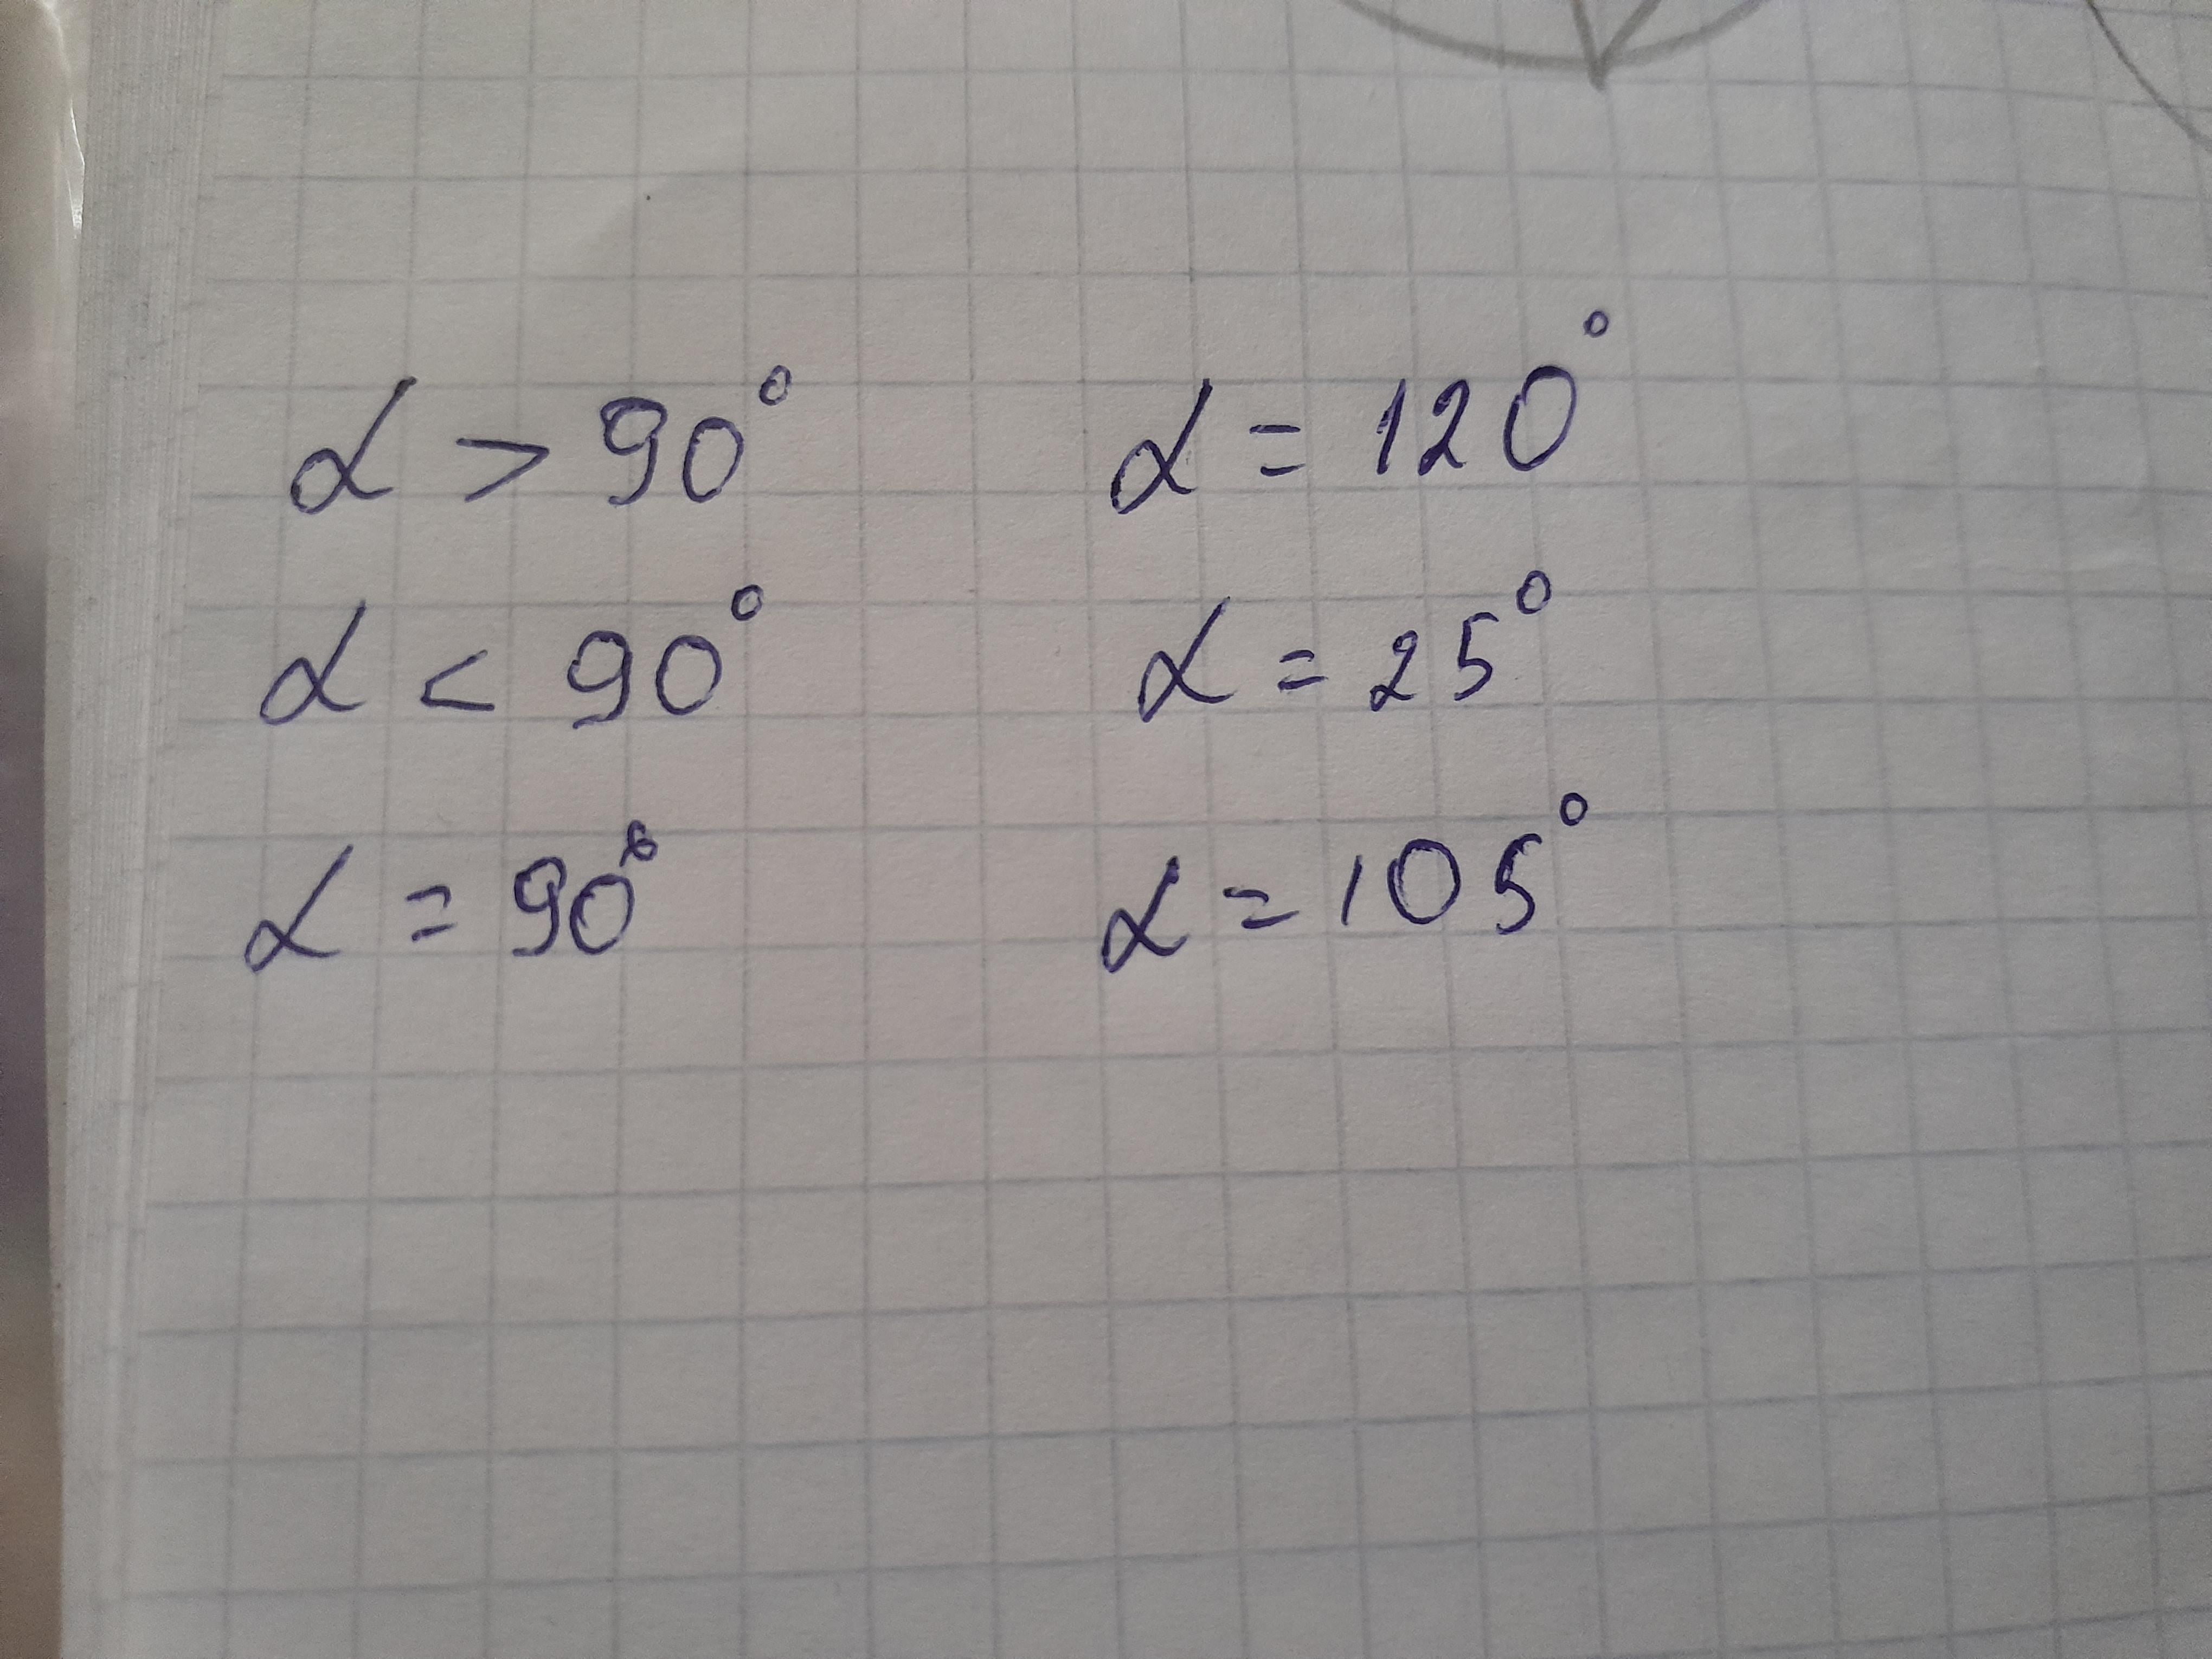 α > 90° α = 120°
α < 90° α = 25°
α = 90° α = 105°